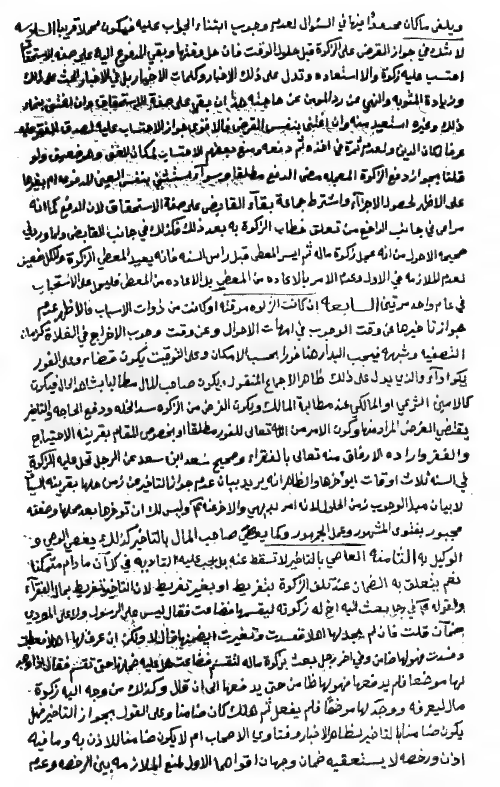 لا شك في جواز القرض على الزكوة قبل حلول الوقت فان حل وقتها وبقى المدفوع اليه على صفة الاستحقاق
احتسب عليه زكوة والا استعاده وتدل على ذلك الاخبار وكلمات
وزيادة المثوبة والنهي عن رد المؤمن عن حاجته هذا ان بقى على صفة الاستحقاق وان
ذلك وغيره استعيد منه وان بنفس القرض فالاقوى جواز الاحتساب عليه
عرفا لمكان الدين ولعدم ثمرة في اخذه ثم دفعه ومنع بعضهم الاحتساب لمكان الغنى وهو ضعيف ولو
قلنا بجواز دفع الزكوة المعجله مضى الدفع مطلقا وسواء استغنى بنفس العين المدفوعه ام بغيرها
على الاظهر لحصول الاجزاء واشترط جماعة بقاء القابض على صفة الاستحقاق لان الدفع كما انه
مراعى في جانب الدافع من تعلق خطاب الزكوة به بعد ذلك فكذلك في جانب القابض ولما ورد في
صحيحه الاحول من انه عجل زكوة ماله ثم ايسر المعطى قبل راس السنه فانه يعيد المعطي الزكوة والكل ضعيف
لعدم الملازمة في الاول وعدم الامر بالاعاده من المعطي بل الاعاده من المعطى فليحمل على الاستحباب
في عام واحد مرتين السابعة ان كانت الزكوة موقته او كانت من ذوات الاسباب فالاظهر عدم
جواز تاخيرها عن وقت الوجوب في امهات الاموال وعن وقت وجوب الاخراج في الغلاة كزمان
التصفية وشبهه فيجب البدار هنا فورا بحسب الامكان وعلى التوقيت يكون قضاء وعلى الفور
يكون اداء والذي يدل على ذلك ظاهر الاجماع المنقول ويكون صاحب المال مطالبا بشاهد الحال فيكون
كالامين الشرعي او المالكي عند مطالبة المالك وبكون الغرض من الزكوة سد الخله ودفع الحاجه والتاخير
يقتضي الغرض المراد منها وبكون الامر من الله تعالى للفور مطلقا او بخصوص المقام بقرينة الاحتياج
والفقر وارادة الارفاق منه تعالى بالفقراء وصحيح سعد ابن سعد عن الرجل تحل عليه الزكوة
في السنه ثلاث اوقات ايؤخرها والظاهر انه يريد بيان عدم جواز التاخير عن زمن حلها بقرينة
لا بيان مبدأ الوجوب زمن الحلول لانه امر بديهي والاخرى تم وليس لك ان توخرها بعد حلها وضعفه
مجبور بفتوى المشهور وعمل الجمهور وكما يعصي صاحب المال بالتاخير كذلك يعصي الوصي و
الوكيل به الثامنة العاصي بالتاخير لا تسقط عنه بل يجب عليه التاديه في كل آن ما دام متمكنا
نعم يتعلق به الضمان عند تلف الزكوة بتفريط او بغير تفريط لان التاخير تفريط بمال الفقراء
ولقوله في رجل بعث اليه اخ له زكوته ليقسمها فضاعت فقال ليس على الرسول ولا على المودي
ضمان قلت فان لم يجد لها اهلا ففسدت وتغيرت ايضمنها قال لا ولكن ان عرف لها اهلا فعطبت
او فسدت فهو لها ضامن وفي اخر رجل بعث بزكوة ماله لتقسم فضاعت هل عليه ضمانها حتى تقسم فقال اذا وجد
لها موضعا فلم يدفعها فهو لها ضامن حتى يدفعها الى ان قال وكذلك من وجه اليه زكوة
مال ليفرقه ووجد لها موضعا فلم يفعل ثم هلك كان ضامنا وعلى القول بجواز التاخير فهل
يكون ضامنا بالتاخير لظاهر الاخبار وفتاوى الاصحاب ام لا يكون ضامنا للاذن به وما فيه
اذن ورخصه لا يستعقبه ضمان وجهان اقواهما الاول لمنع الملازمه بين الرخصه وعدم